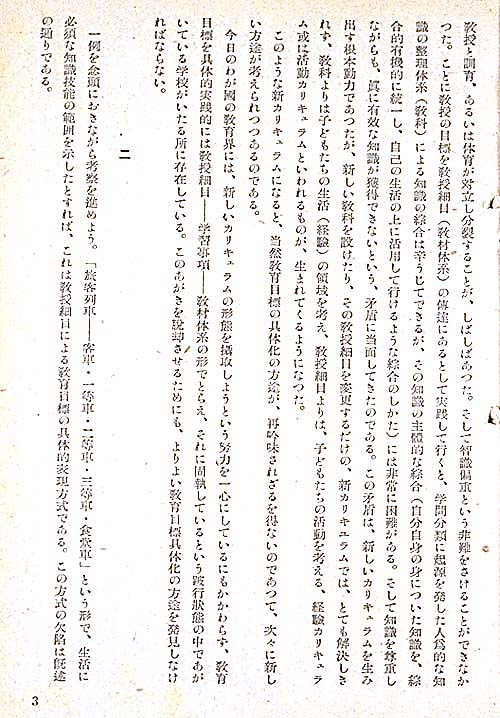 教授と訓育、あるいは体育が対立し分裂することが、しばしばあつた。そして智識偏重という非難をさけることができなか
つた。ことに教授の目標を教授細目（教材体系）の傳達にあるとして実践して行くと、学問分類に起源を発した人為的な知
識の整理体系（教科）による知識の綜合は辛うじてできるが、その知識の主體的な綜合（自分自身の身についた知識を、綜
合的有機的に統一し、自己の生活の上に活用して行けるような綜合のしかた）には非常に困難がある。そして知識を尊重し
ながらも、眞に有效な知識が獲得できないという、矛盾に当面してきたのである。この矛盾は、新しいカリキュラムを生み
出す根本動力であつたが、新しい教科を設けたり、その教授細目を変更するだけの、新カリキュラムでは、とても解決しき
れず、教科よりは子どもたちの生活（経驗）の領域を考え、教授細目よりは、子どもたちの活動を考える、経驗カリキュラ
ム或は活動カリキュラムといわれるものが、生まれてくるようになつた。
このような新カリキュラムになると、当然教育目標の具体化の方途が、再吟味されざるを得ないのであつて、次々に新し
い方途が考えられつつあるのである。
今日のわが國の教育界には、新しいカリキュラムの形態を攝取しようという努力を一心にしているにもかかわらず、教育
目標を具体的実践的には教授細目——学習事項——教材体系の形でとらえ、それに固執しているという跛行狀態の中であが
いている学校がいたる所に存在している。このあがきを脱却させるためにも、よりよい教育目標具体化の方途を発見しなけ
ればならない。
二
一例を念頭におきながら考察を進めよう。「旅客列車——客車・一等車・二等車・三等車・食堂車」という形で、生活に
必須な知識技能の範囲を示したとすれば、これは教授細目による教育目標の具体的表現方式である。この方式の欠陷は既述
の通りである。
3